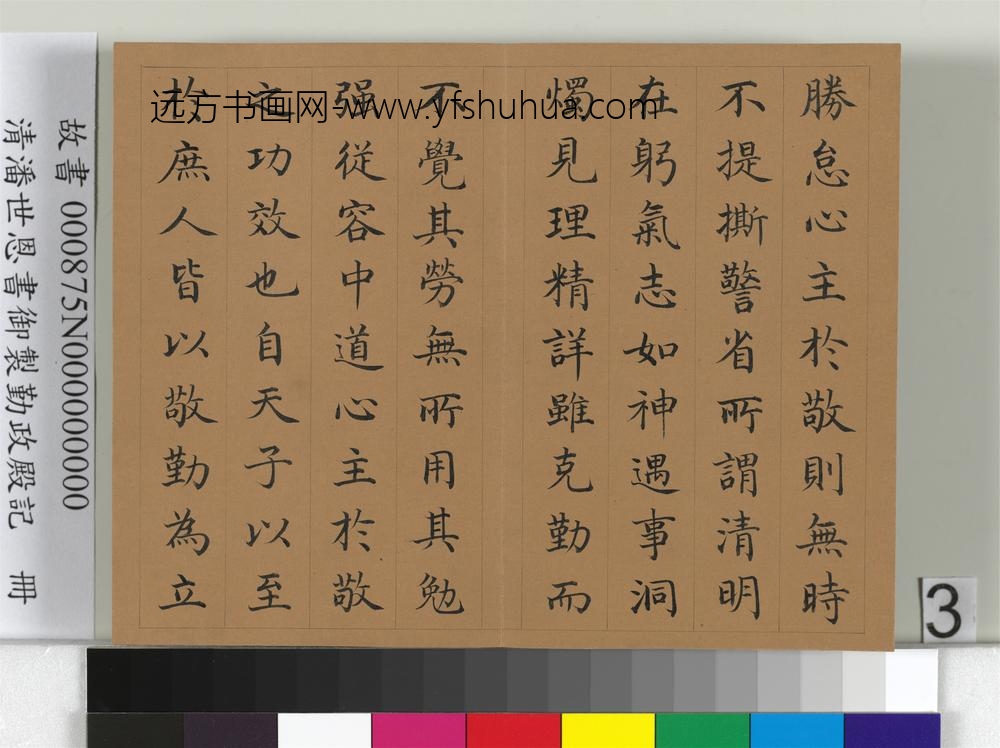 勝怠心主於敬則無時
不提撕警省所謂清明
在躬氣志如神遇事洞
燭見理精詳雖克勤而
不覺其勞無所用其勉
强從容中道心主於敬
之功效也自天子以至
於庶人皆以敬勤為立
远方书画网-www.yfshuhua.com
故書 000875N000000000
清潘世恩書御製勤政殿記 冊
3